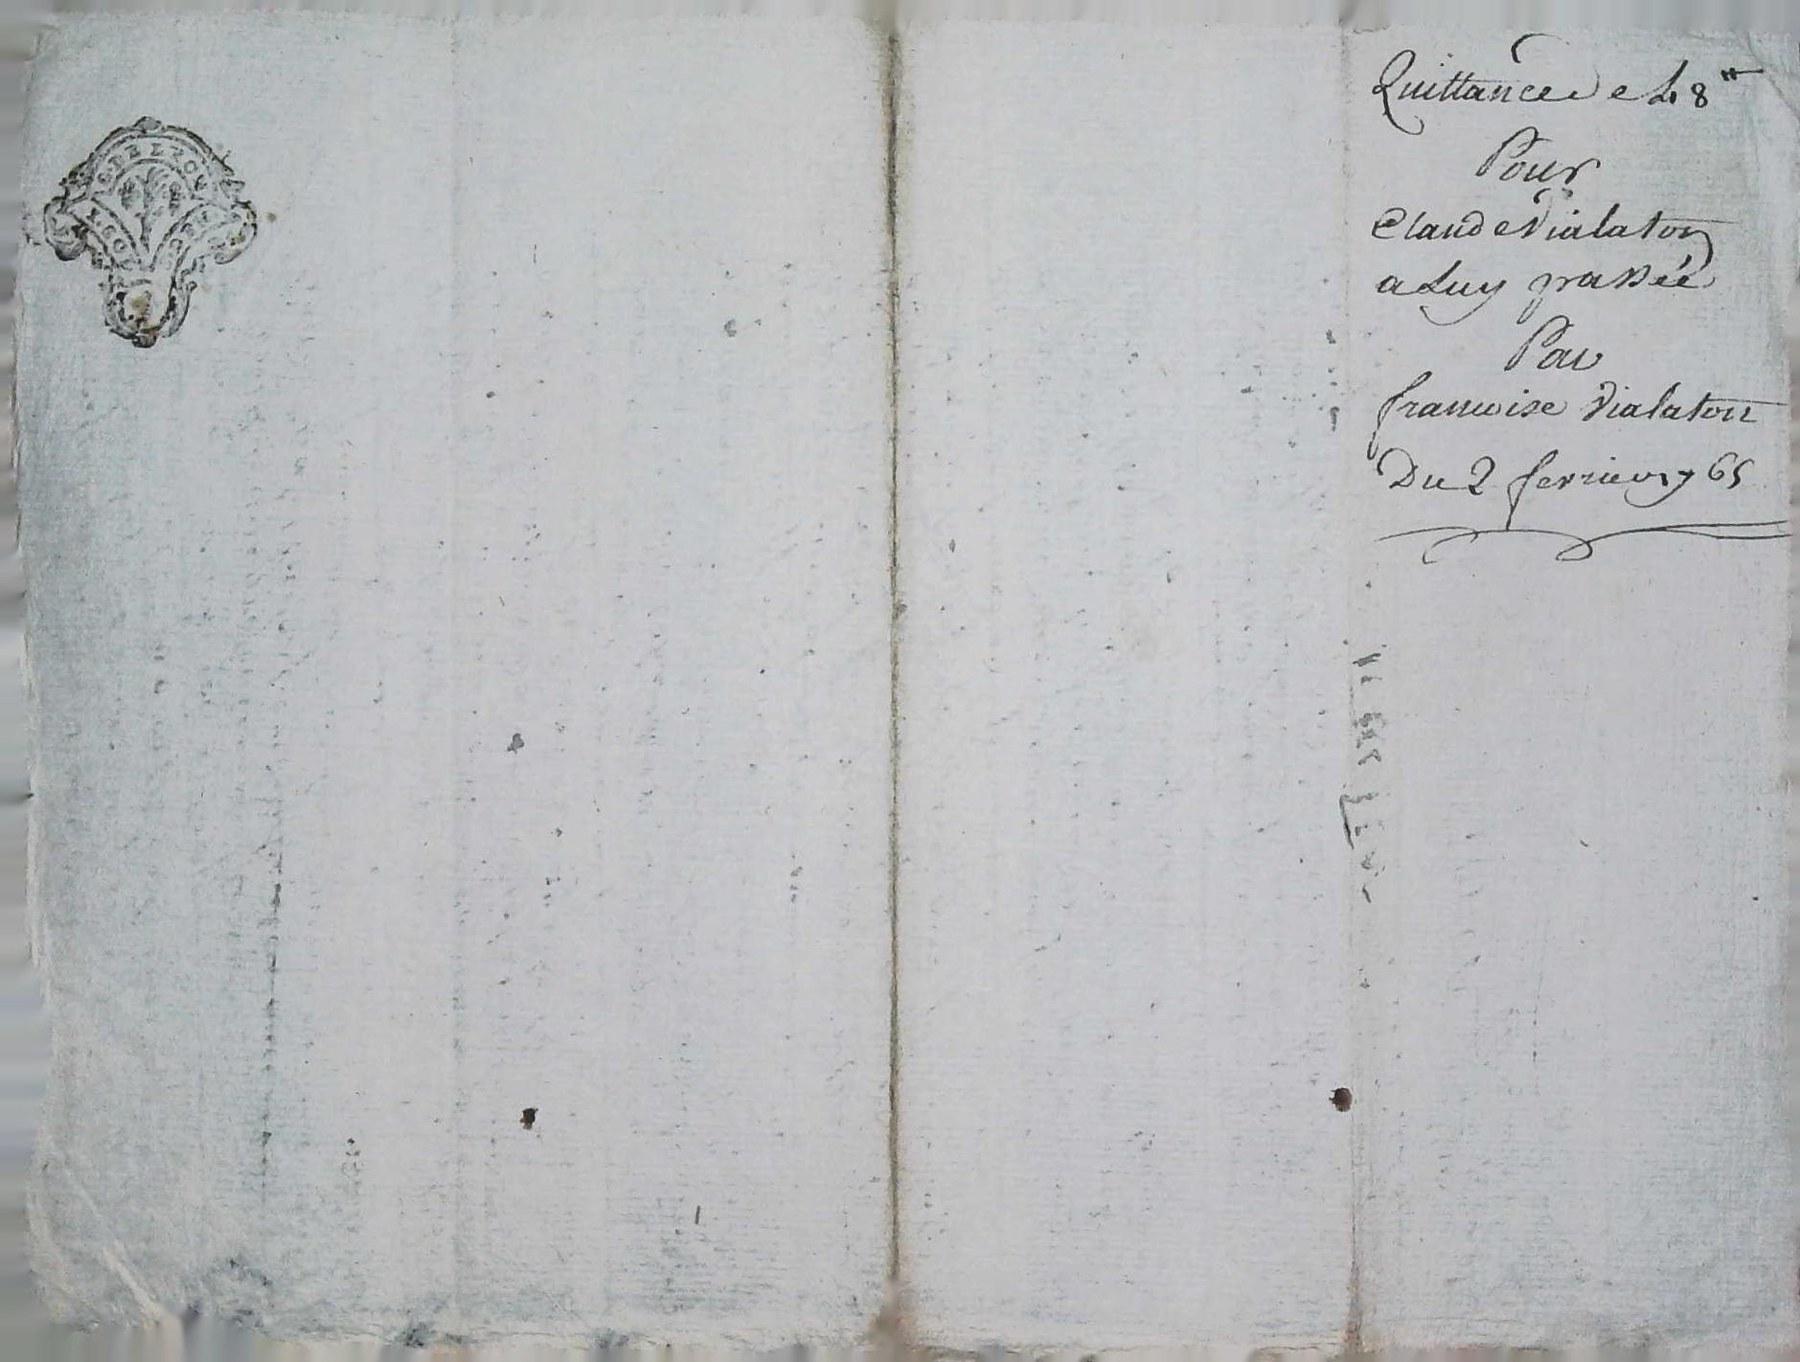 Quittance de 48 ₶
Pour
Claude Vialaton
a Luy passée
Par
francoise Vialaton
Du 2 fevrier 1765